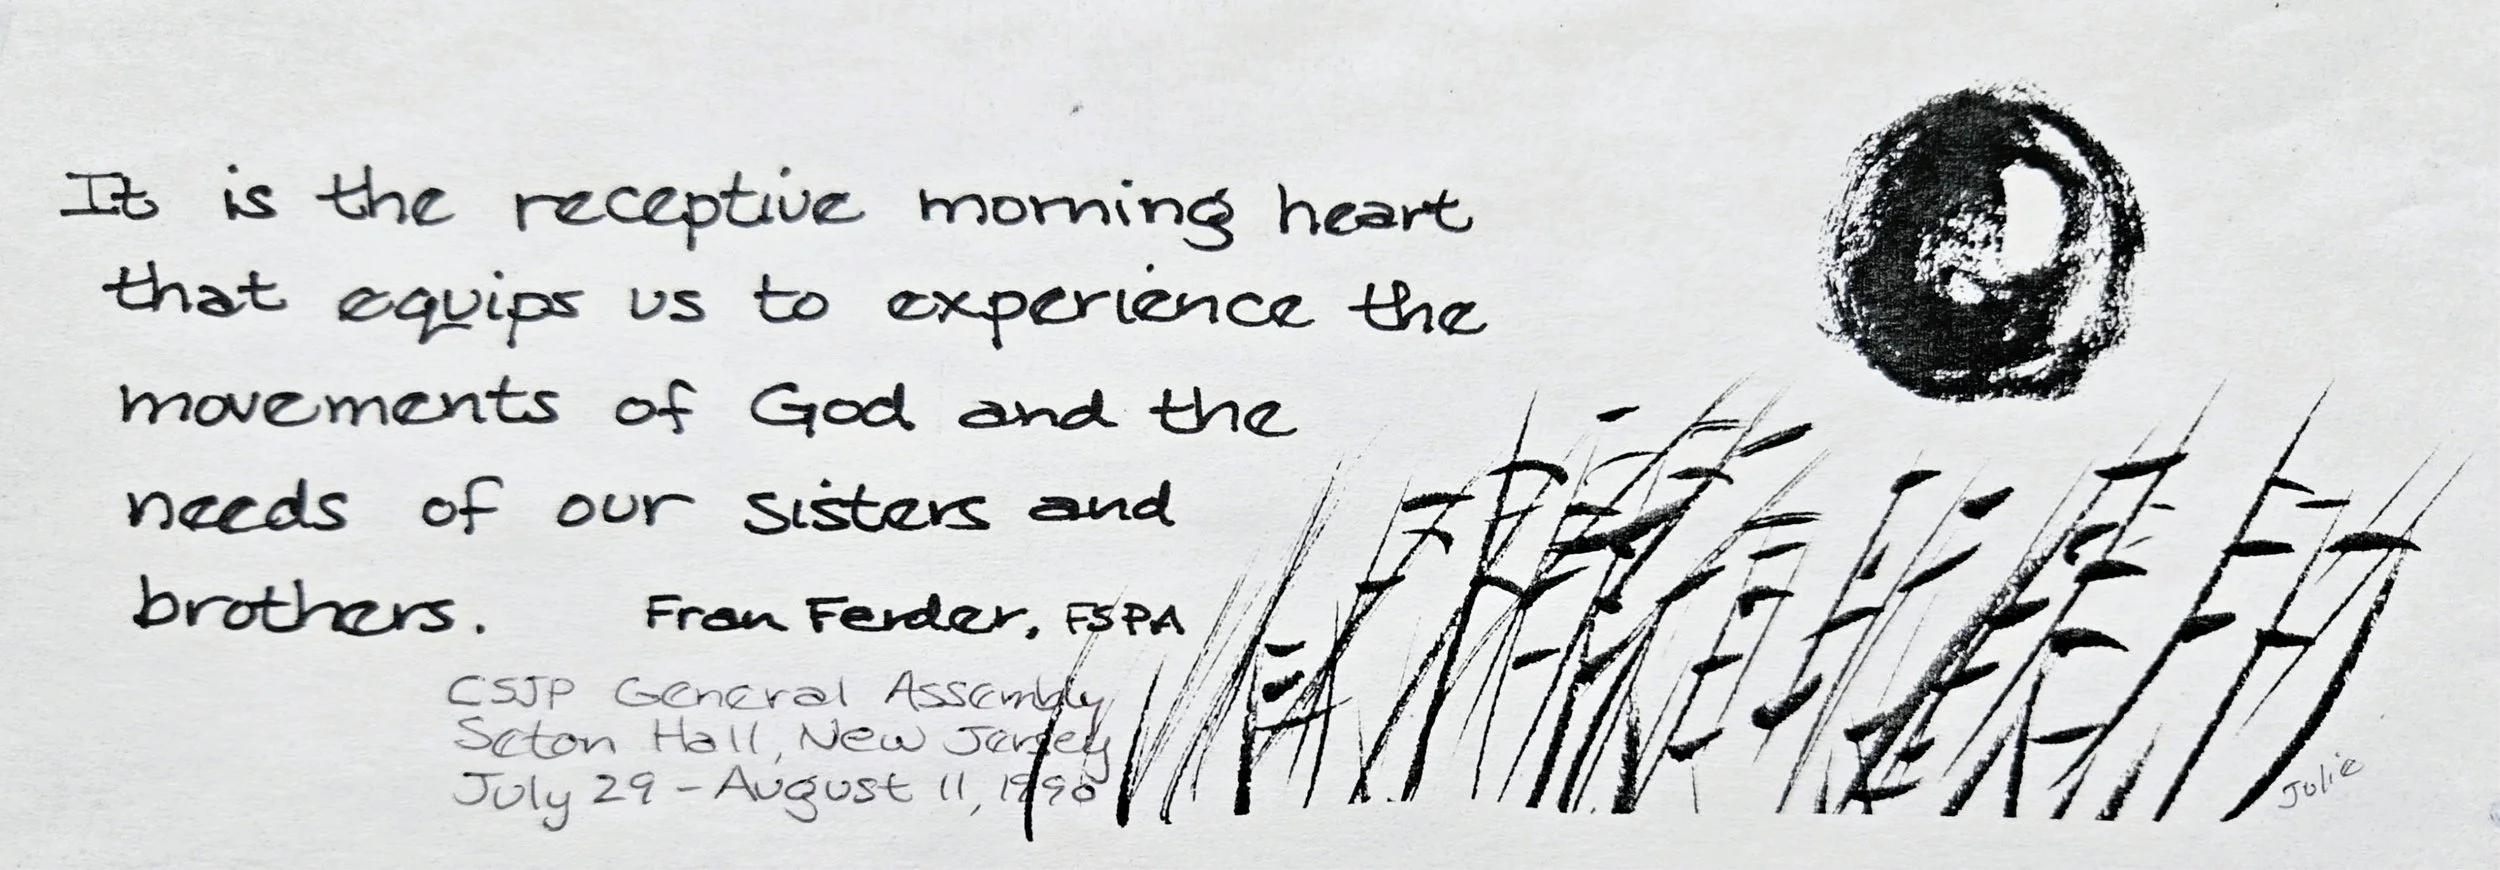 It is the receptive morning heart
that equips us to experience the
movements of God and the
needs of our sisters and
brothers. Fran Ferder, FSPA
CSJP General Assembly
Seton Hall, New Jersey
July 29 - August 11, 1990
Julie